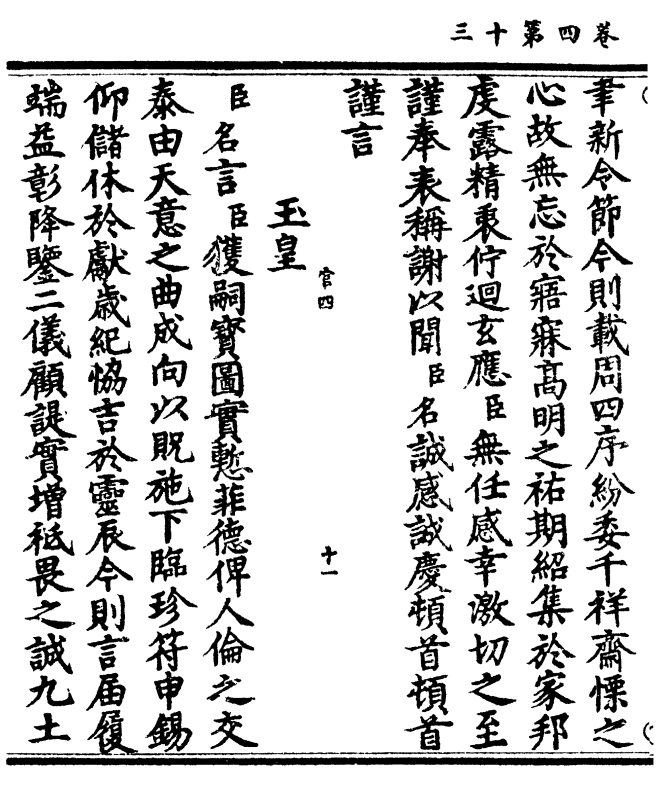 卷四第十三
聿新令節今則載周四序紛委千祥齋慄之
心故無忘於寤寐高明之祐期紹集於家邦
虔露精衷佇迴玄應臣無任感幸激切之至
謹奉表稱謝以聞臣名誠感誠慶頓首頓首
謹言
官四
十一
玉皇
臣名言臣獲嗣寶圖實慙菲德俾人倫之交
泰由天意之曲成向以貺施下臨珍符申錫
仰儲休於獻歲紀恊吉於靈辰今則言届履
端益彰降鑒二儀顧諟實增祗畏之誠九土